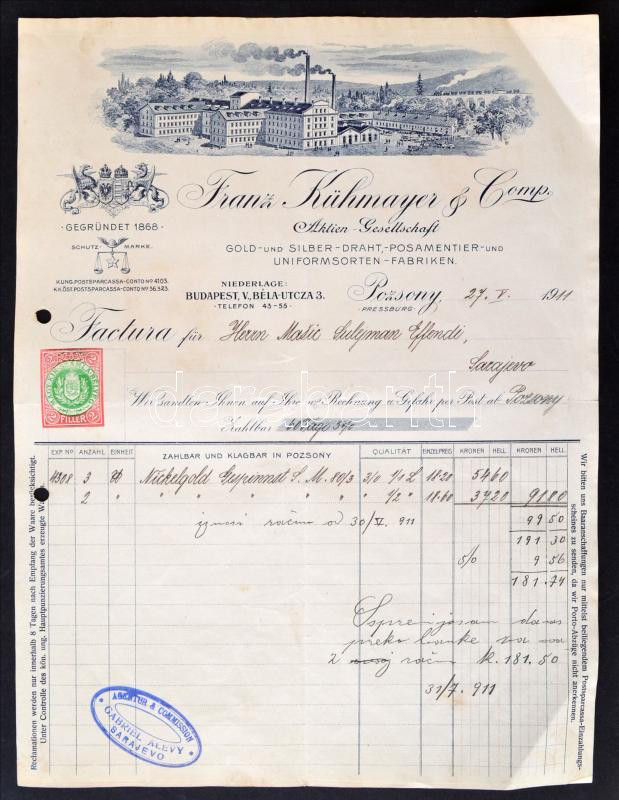 Franz Kühmayer & Comp.
Aktien-Gesellschaft
GOLD-UND SILBER-DRAHT,-POSAMENTIER-UND
UNIFORMSORTEN-FABRIKEN.
·GEGRÜNDET 1868·
SCHUTZ-MARKE.
KUNG. POSTSPARCASSA-CONTO Nº 4103.
KK. ÖST. POSTSPARCASSA-CONTO Nº 56.323.
NIEDERLAGE:
BUDAPEST, V., BÉLA-UTCZA 3.
-TELEFON 43-55-
Pozsony, 27. V. 1911
-PRESSBURG-
Factura für Herrn Mašic Sulejman Effendi,
Sarajevo
2 2
2 FILLER 2
Wir sandten Ihnen auf Ihre w. Rechnung u. Gefahr per Post ab Pozsony
Zahlbar 30 Tage 5%
ZAHLBAR UND KLAGBAR IN POZSONY
EXP. Nº ANZAHL EINHEIT QUALITÄT EINZELPREIS KRONEN HELL. KRONEN HELL.
4308 3 Nickelgold Gespinnst S. M. 80/3 2/0 1/1 L 18·20 54 60
2 " " " " " " " 1/2 " 18·60 37 20 91 80
račun od 30/IV. 911 99 50
191 30
5/0 9 56
181.74
danas
preko banke
2 račun K. 181.50
31/7. 911
AGENTUR & COMMISSION
GABRIEL ALEVY
SARAJEVO
Reclamationen werden nur innerhalb 8 Tagen nach Empfang der Waare berücksichtigt.
Unter Controlle des kön. ung. Hauptpunzierungsamtes erzeugte
Wir bitten uns Baaranschaffungen nur mittelst beiliegendem Postsparcassa-Einzahlungs-
scheines zu senden, da wir Porto-Abzüge nicht anerkennen.